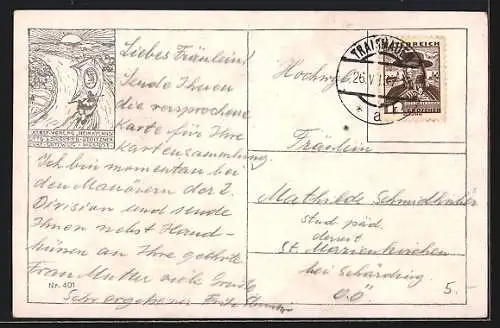 Liebes Fräulein!
Sende Ihnen
die versprochene
Karte für Ihre
Kartensammlung.
Ich bin momentan bei
den Manövern der 2.
Division und sende
Ihnen nebst Hand-
küssen an Ihre geehrte
Frau Mutter viele Grüße
Sehr ergebener Fritz
Nr. 401
TRAISMAUER
26.V
* a
ÖSTERREICH
12
Hochwgb.
Fräulein
Mathilde Schmidhuber
stud päd.
derzeit
St. Marienkirchen
bei Schärding
O.Ö.
5.-